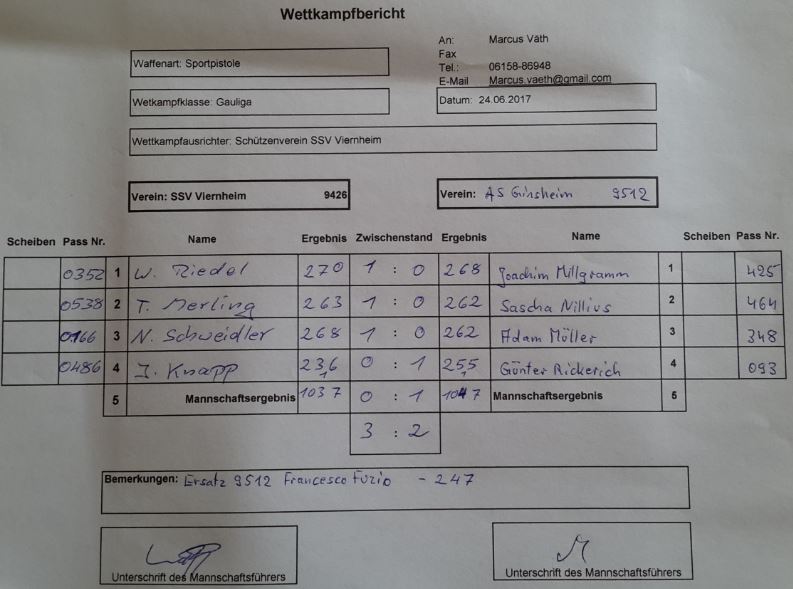 Wettkampfbericht
An: Marcus Väth
Fax
Waffenart: Sportpistole
Tel.: 06158-86948
E-Mail Marcus.vaeth@gmail.com
Wetkampfklasse: Gauliga
Datum: 24.06.2017
Wettkampfausrichter: Schützenverein SSV Viernheim
Verein: SSV Viernheim 9426
Verein: AS Ginsheim 9512
Scheiben Pass Nr. Name Ergebnis Zwischenstand Ergebnis Name Scheiben Pass Nr.
0352 1 W. Riedel 270 1 : 0 268 Joachim Millgramm 1 425
0538 2 T. Merling 263 1 : 0 262 Sascha Nillius 2 464
0166 3 N. Schweidler 268 1 : 0 262 Adam Möller 3 348
0486 4 J. Knapp 236 0 : 1 255 Günter Rickerich 4 093
5 Mannschaftsergebnis 1037 0 : 1 1047 Mannschaftsergebnis 5
3 : 2
Bemerkungen: Ersatz 9512 Francesco Fuzio - 247
Unterschrift des Mannschaftsführers
Unterschrift des Mannschaftsführers